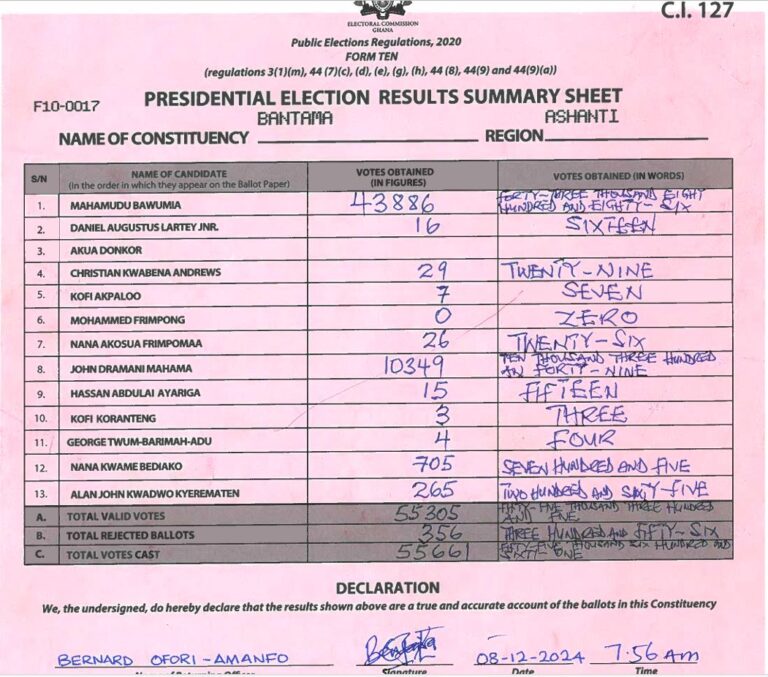 C.I. 127
ELECTORAL COMMISSION
GHANA
Public Elections Regulations, 2020
FORM TEN
(regulations 3(1)(m), 44 (7)(c), (d), (e), (g), (h), 44 (8), 44(9) and 44(9)(a))
F10-0017
PRESIDENTIAL ELECTION RESULTS SUMMARY SHEET
NAME OF CONSTITUENCY BANTAMA REGION ASHANTI
S/N NAME OF CANDIDATE (In the order in which they appear on the Ballot Paper) VOTES OBTAINED (IN FIGURES) VOTES OBTAINED (IN WORDS)
1. MAHAMUDU BAWUMIA 43886 FORTY-THREE THOUSAND EIGHT HUNDRED AND EIGHTY-SIX
2. DANIEL AUGUSTUS LARTEY JNR. 16 SIXTEEN
3. AKUA DONKOR
4. CHRISTIAN KWABENA ANDREWS 29 TWENTY-NINE
5. KOFI AKPALOO 7 SEVEN
6. MOHAMMED FRIMPONG 0 ZERO
7. NANA AKOSUA FRIMPOMAA 26 TWENTY-SIX
8. JOHN DRAMANI MAHAMA 10349 TEN THOUSAND THREE HUNDRED AN FORTY-NINE
9. HASSAN ABDULAI AYARIGA 15 FIFTEEN
10. KOFI KORANTENG 3 THREE
11. GEORGE TWUM-BARIMAH-ADU 4 FOUR
12. NANA KWAME BEDIAKO 705 SEVEN HUNDRED AND FIVE
13. ALAN JOHN KWADWO KYEREMATEN 265 TWO HUNDRED AND SIXTY-FIVE
A. TOTAL VALID VOTES 55305 FIFTY-FIVE THOUSAND THREE HUNDRED AND FIVE
B. TOTAL REJECTED BALLOTS 356 THREE HUNDRED AND FIFTY-SIX
C. TOTAL VOTES CAST 55661 FIFTY-FIVE THOUSAND SIX HUNDRED AND SIXTY-ONE
DECLARATION
We, the undersigned, do hereby declare that the results shown above are a true and accurate account of the ballots in this Constituency
BERNARD OFORI-AMANFO 08-12-2024 7:56 am
Name of Returning Officer Signature Date Time